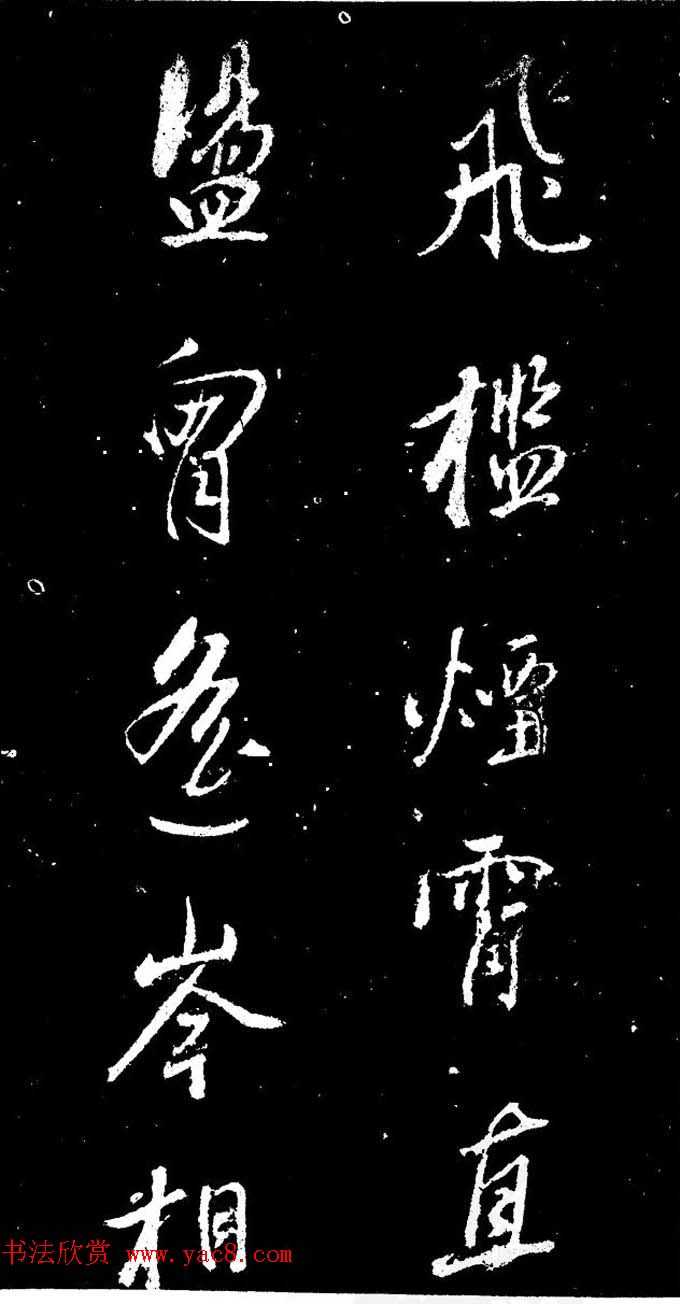 飛檻煙霄直
盪胷岑相
书法欣赏 www.yac8.com